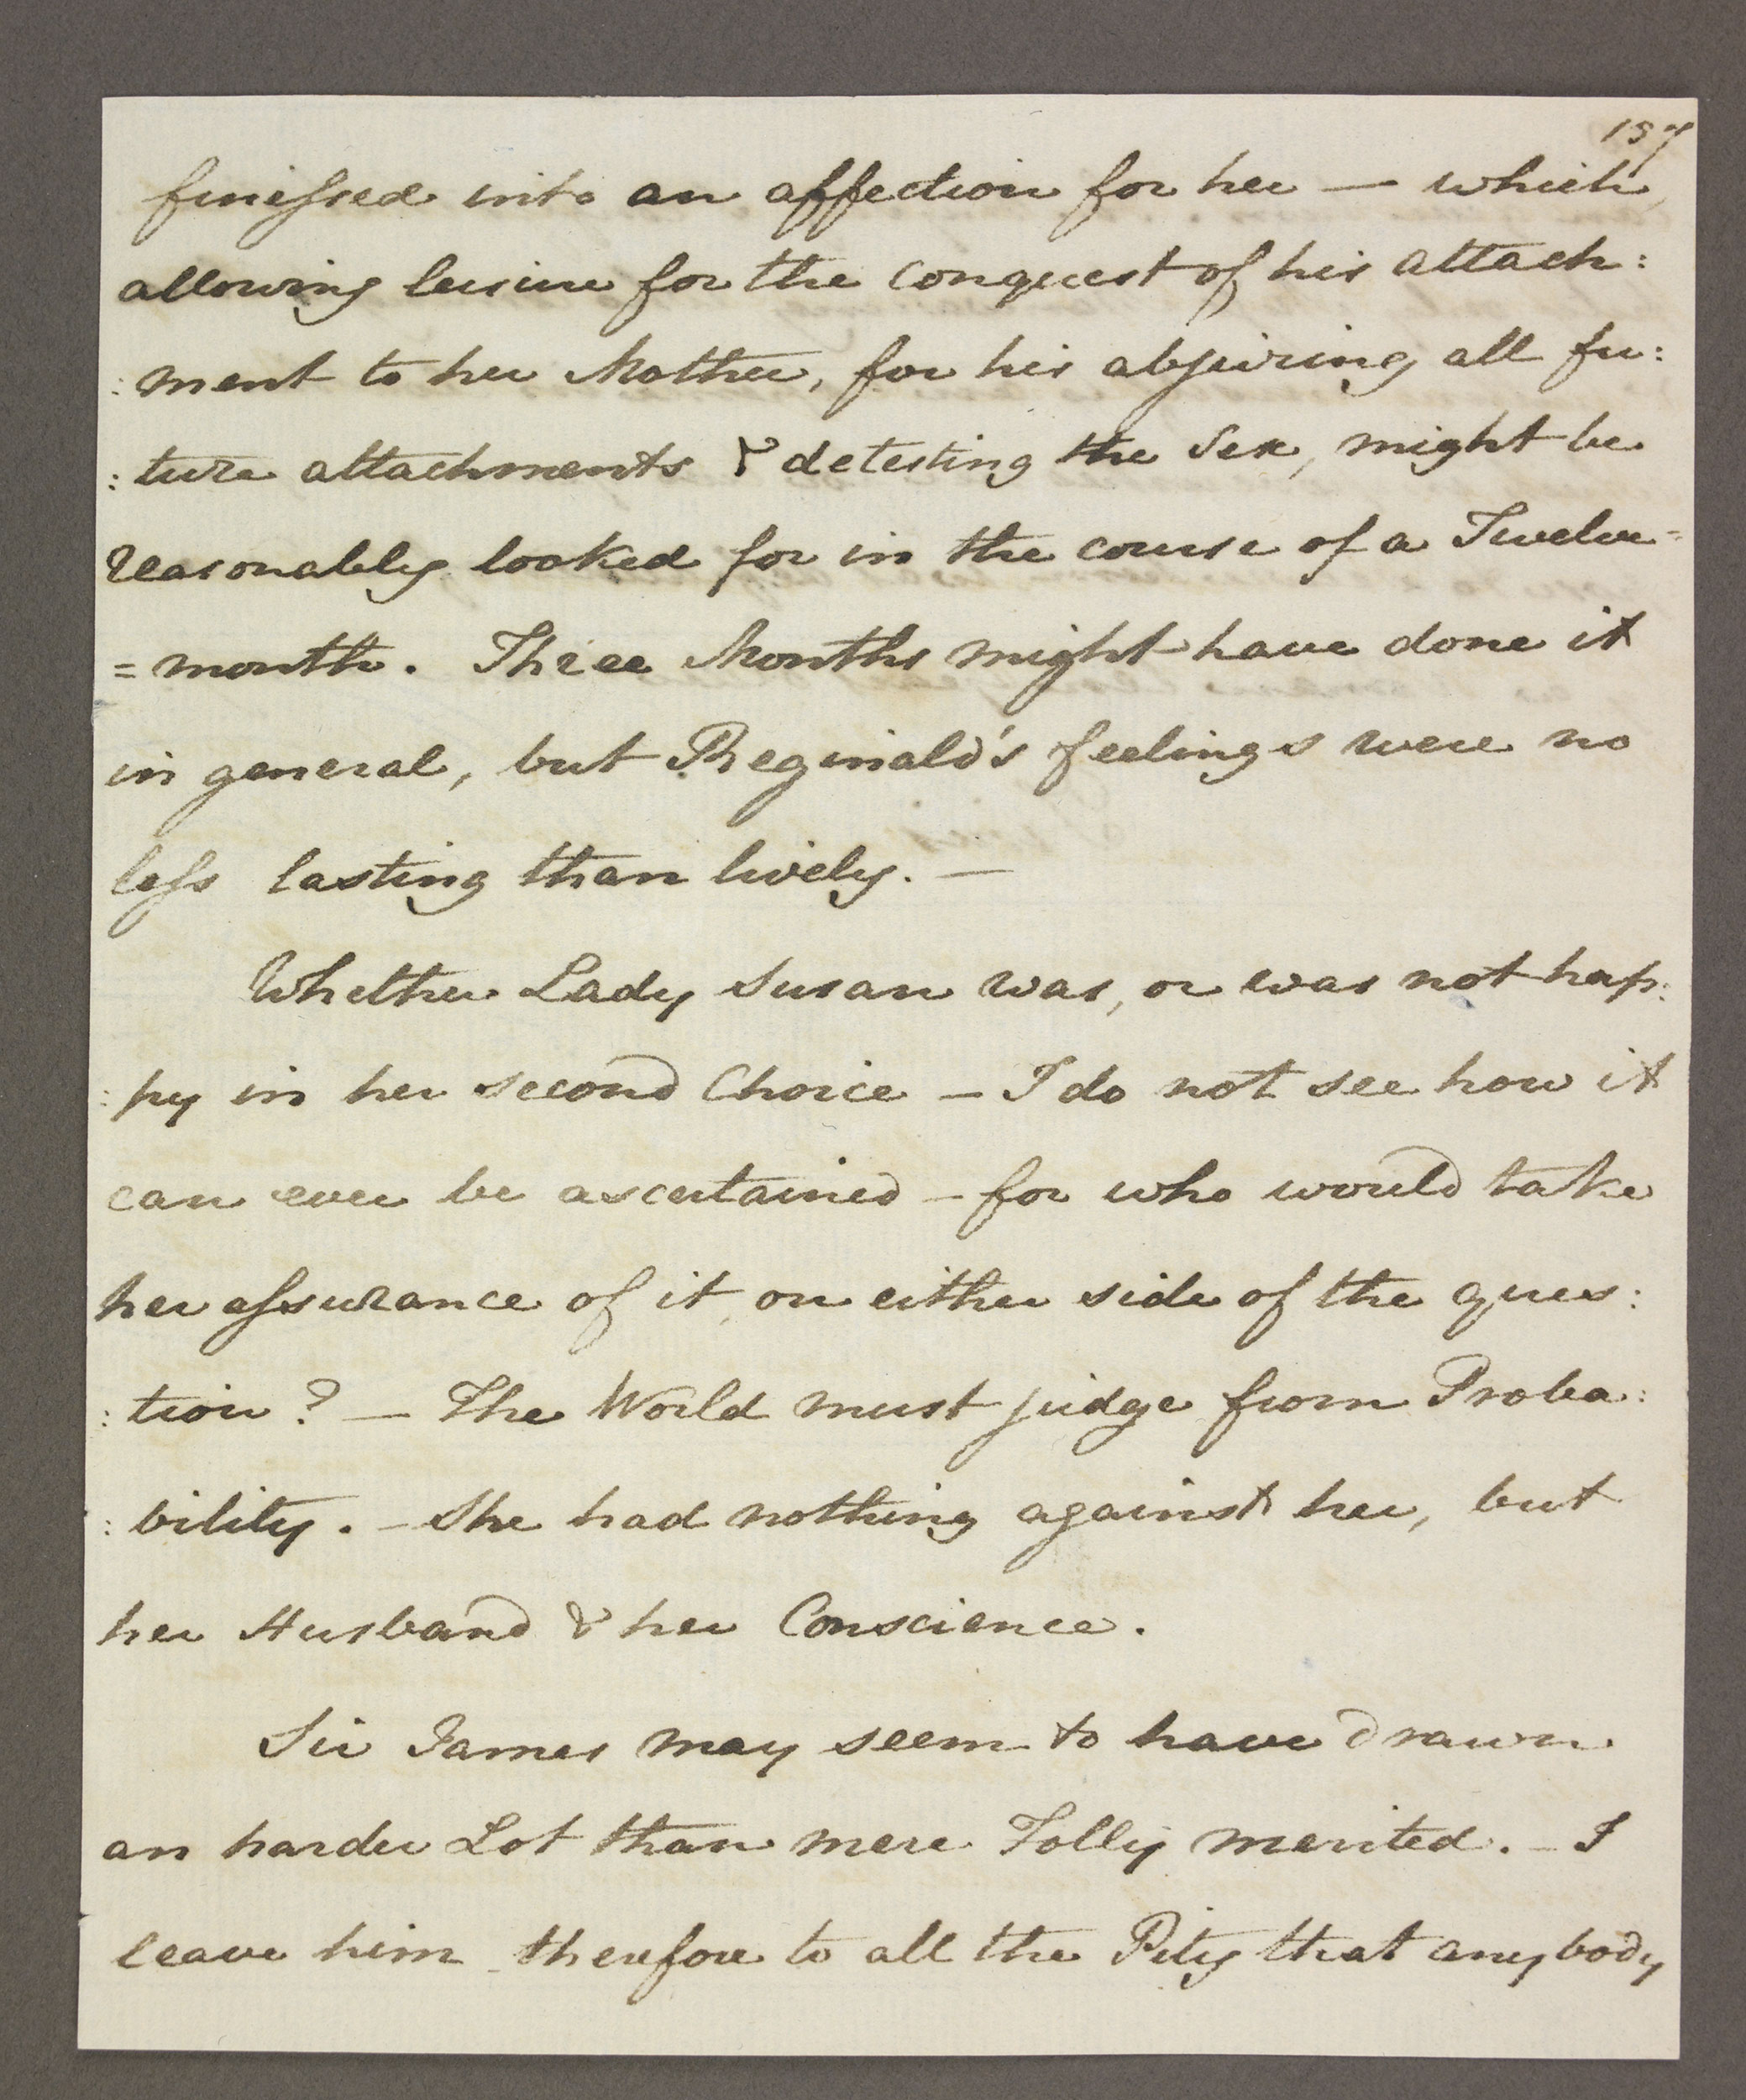 157
finessed into an affection for her — which,
allowing leisure for the conquest of his attach:
:ment to her Mother, for his abjuring all fu:
:ture attachments & detesting the Sex, might be
reasonably looked for in the course of a Twelve=
=month. Three Months might have done it
in general, but Reginald's feelings were no
less lasting than lively. —
Whether Lady Susan was, or was not hap:
:py in her second Choice — I do not see how it
can ever be ascertained — for who would take
her assurance of it, on either side of the ques:
:tion? — The World must judge from Proba:
:bility. — She had nothing against her, but
her Husband & her Conscience.
Sir James may seem to have drawn
an harder Lot than mere Folly merited. — I
leave him therefore to all the Pity that anybody